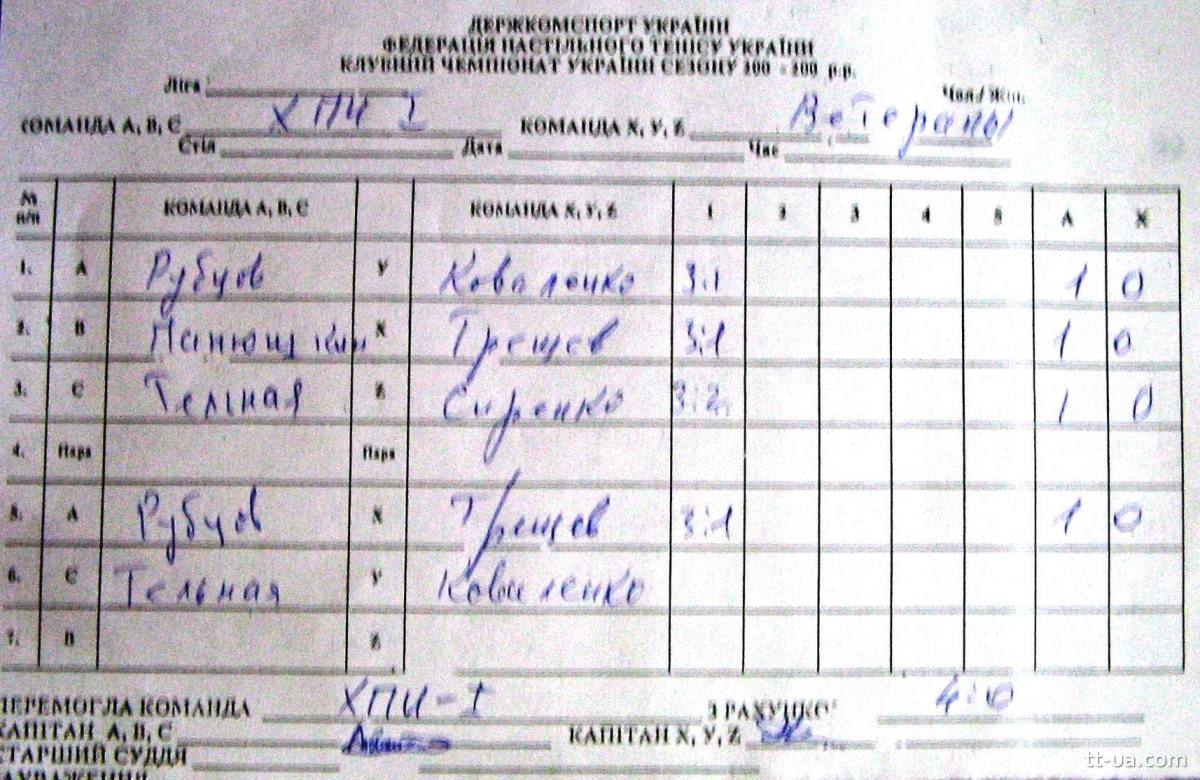 ДЕРЖКОМСПОРТ УКРАЇНИ
ФЕДЕРАЦІЯ НАСТІЛЬНОГО ТЕНІСУ УКРАЇНИ
КЛУБНИЙ ЧЕМПІОНАТ УКРАЇНИ СЕЗОНУ 200 - 200 р.р.
Ліга Чол./ Жін.
КОМАНДА А, В, С ХПИ I КОМАНДА X, У, Z Ветераны
Стіл Дата Час
№ п/п КОМАНДА А, В, С КОМАНДА X, У, Z 1 2 3 4 5 А X
1. А Рубцов У Коваленко 3:1 1 0
2. В Панюшкин X Трещев 3:1 1 0
3. С Тельная Z Сиренко 3:2 1 0
4. Пара Пара
5. А Рубцов X Трещев 3:1 1 0
6. С Тельная У Коваленко
7. В Z
ПЕРЕМОГЛА КОМАНДА ХПИ-I З РАХУНКО 4:0
КАПІТАН А, В, С КАПІТАН X, У, Z
СТАРШИЙ СУДДЯ
ЗАУВАЖЕННЯ
tt-ua.com